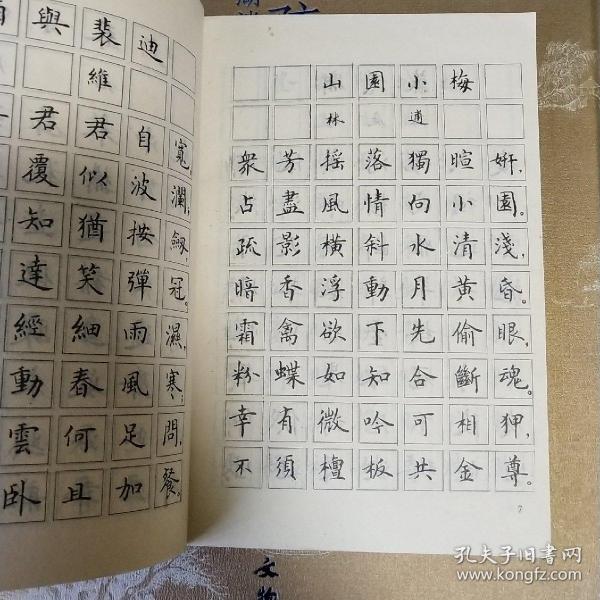 與裴迪
維
君君自寬,
覆似波瀾,
知猶按劔,
達笑彈冠。
經細雨濕,
動春風寒;
雲何足問,
臥且加餐。
山園小梅
林逋
眾芳搖落獨暄妍,
占盡風情向小園。
疏影橫斜水清淺,
暗香浮動月黃昏。
霜禽欲下先偷眼,
粉蝶如知合斷魂。
幸有微吟可相狎,
不須檀板共金尊。
7
文物
孔夫子旧书网
www.kongfz.com